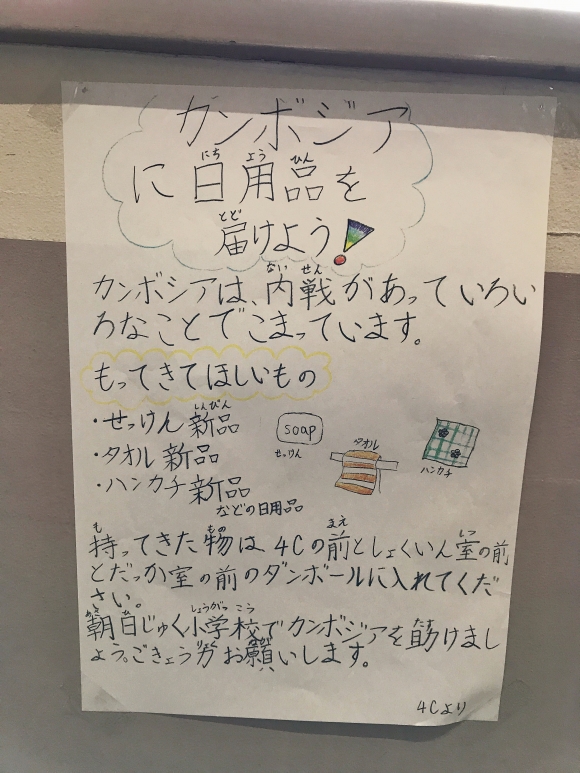 カンボジア
にち よう ひん
に日用品を
とど
届けよう!
ない せん
カンボシアは、内戦があっていろい
ろなことでこまっています。
もってきてほしいもの
しんぴん
・せっけん 新品
・タオル 新品
・ハンカチ 新品
などの日用品
soap
せっけん
タオル
ハンカチ
も もの まえ しつ
持ってきた物は4Cの前としょくいん室の前
とだっか室の前のダンボールに入れてくだ
さい。
あさ ひ しょうがっ こう たす
朝日じゅく小学校でカンボジアを助けまし
ょう。ごきょう力お願いします。
4Cより